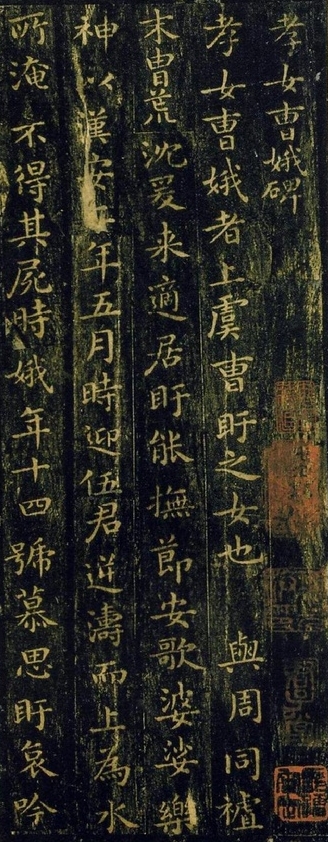 孝女曹娥碑
孝女曹娥者上虞曹盱之女也 與周同祖
末胄荒沈爰来適居盱能撫節安歌婆娑樂
神以漢安二年五月時迎伍君逆濤而上為水
所淹不得其屍時娥年十四號慕思盱哀吟